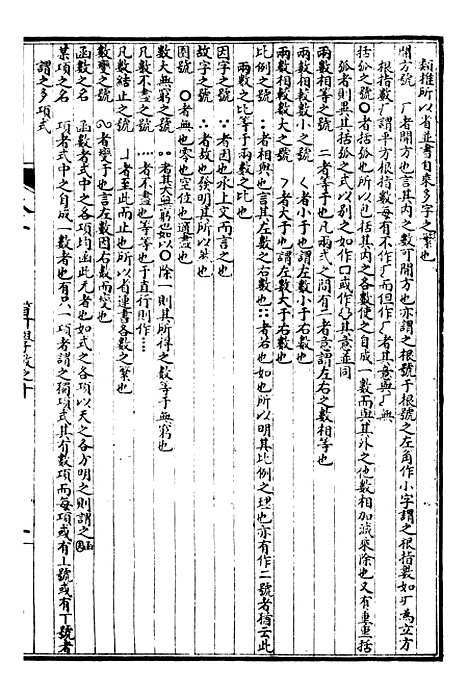 類推所以省連書自乘多字之繁也
開方號　√者開方也言其內之數可開方也亦謂之根號于根號之左角作小字謂之根指數如∛為立方
根指數√謂平方根指數每有不作²√而但作√者其意與²√無
括弧之號　〇者括弧也所以包括其內之各數使之自成一數而與其外之他數相加減乘除也又有重重括
弧者則異其括弧之式以別之如作〔〕或作{}其意並同
兩數相等之號　＝者等于也凡兩式之間有＝者意謂左右之數相等也
兩數相較數小之號　＜者小于也謂左數小于右數也
兩數相較數大之號　＞者大于也謂左數大于右數也
比例之號　：者相與也言其左數之與右數也∷者若也如也所以明其比例之理也亦有作＝號者猶云此
兩數之比等于兩數之比也
因字之號　∵者因也承上文而言之也
故字之號　∴者故也發明其所以然也
圈號　〇者無也零也空位也適盡也
數大無窮之號　∞者其大無窮也如以〇除一則其所得之數等于無窮也
凡數不盡之號　…者不盡也等等也于直行則作⋮
凡數結止之號　」者至此而止也所以省連書各數之繁也
數變之號　者變于也言左數因右數而變也
函數之名　函數者式中之各項均函此元者也如式之各項以天之各方明之則謂之函
某項之名　項者式中之自成一數者也有只一項者謂之獨項式其有數項而每項或有⊥號或有丅號者
謂之多項式